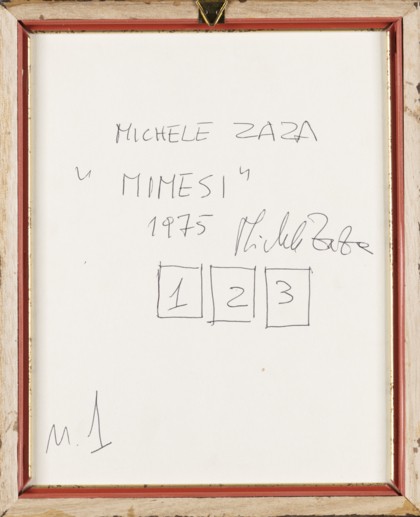 MICHELE ZAZA
"MIMESI"
1975 Michele Zaza
1 2 3
n. 1